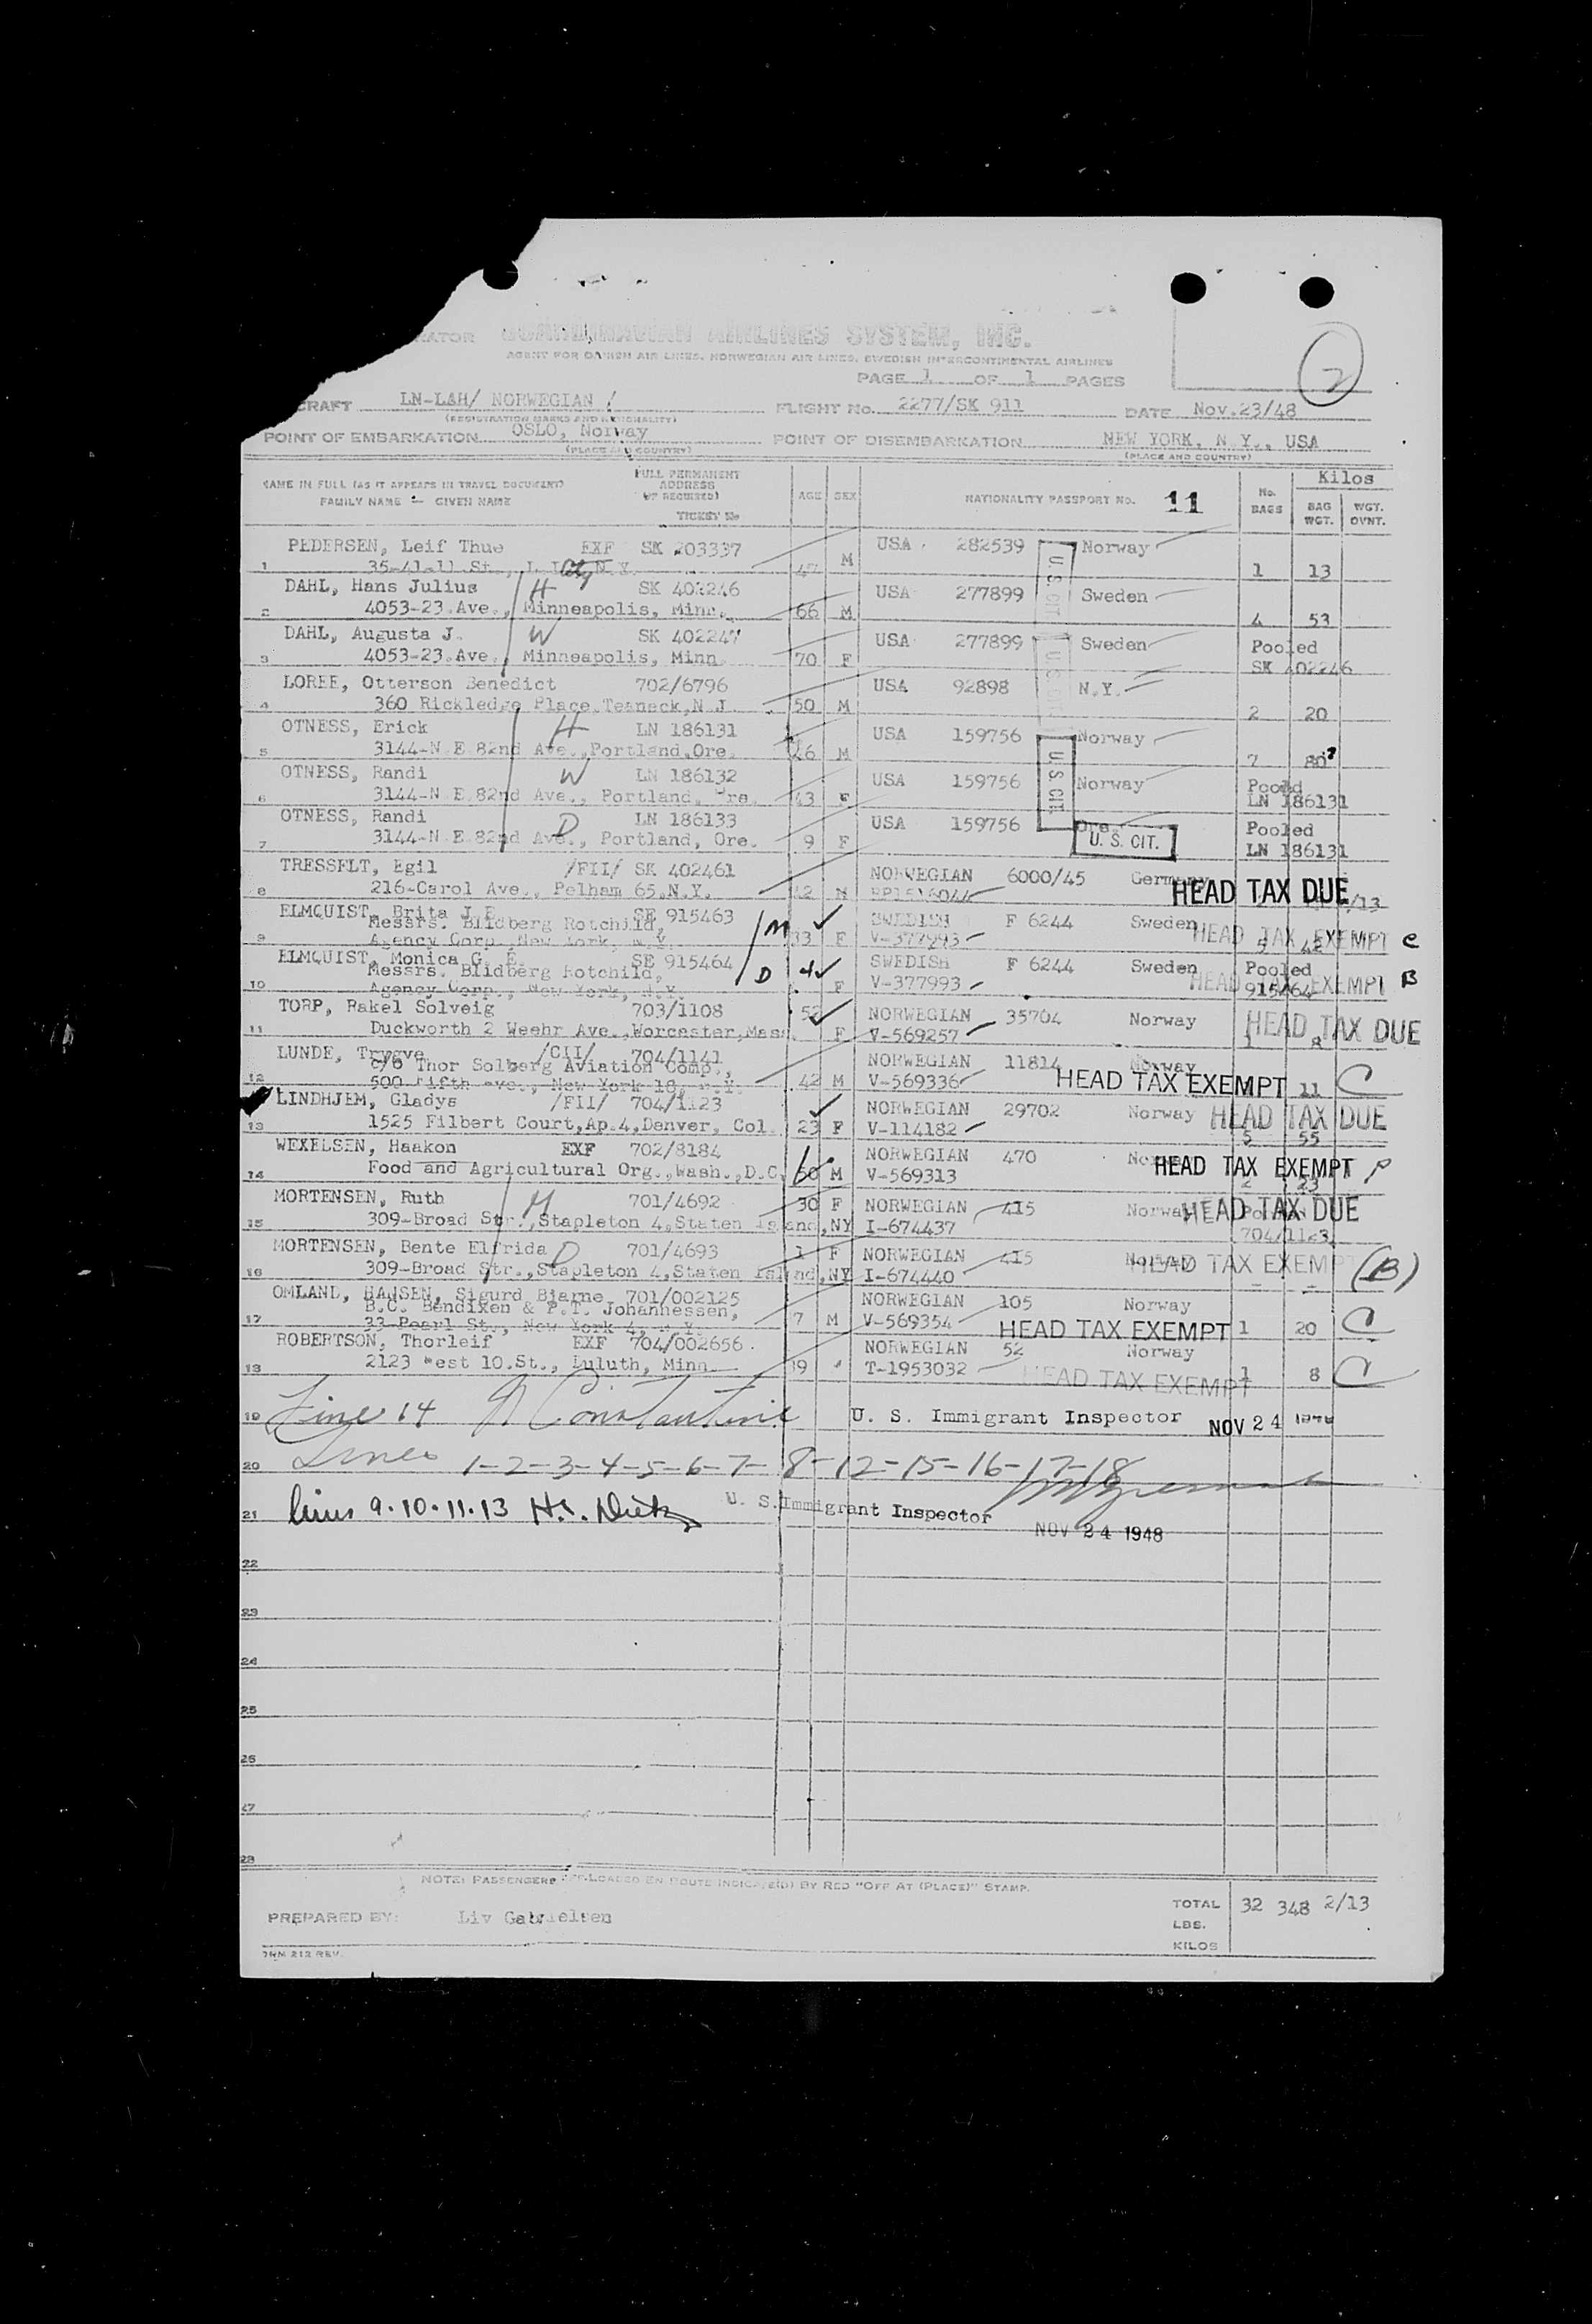 SCANDINAVIAN AIRLINES SYSTEM, INC.
AGENT FOR DANISH AIR LINES, NORWEGIAN AIR LINES, SWEDISH INTERCONTINENTAL AIRLINES
2
PAGE 1 OF 1 PAGES
CRAFT LN-LAH/ NORWEGIAN / FLIGHT No. 2277/SK 911 DATE Nov.23/48
(REGISTRATION MARKS AND NATIONALITY)
POINT OF EMBARKATION OSLO, Norway POINT OF DISEMBARKATION NEW YORK, N.Y., USA
(PLACE AND COUNTRY) (PLACE AND COUNTRY)
NAME IN FULL (AS IT APPEARS IN TRAVEL DOCUMENT) FULL PERMANENT ADDRESS (IF REQUIRED) AGE SEX NATIONALITY PASSPORT No. 11 No. BAGS Kilos
FAMILY NAME — GIVEN NAME TICKET No BAG WGT. WGT. OVNT.
PEDERSEN, Leif Thue EXF SK 203337 USA 282539 Norway
1 35-41-11 St., L.I. City N.Y. 47 M 1 13
DAHL, Hans Julius H SK 402246 USA 277899 Sweden
2 4053-23.Ave., Minneapolis, Minn. 66 M 4 53
DAHL, Augusta J. W SK 402247 USA 277899 Sweden Pooled
3 4053-23.Ave., Minneapolis, Minn. 70 F SK 402246
LOREE, Otterson Benedict 702/6796 USA 92898 N.Y.
4 360 Rickledge Place,Teaneck,N.J. 50 M 2 20
OTNESS, Erick H LN 186131 USA 159756 Norway
5 3144-N.E.82nd Ave.,Portland,Ore. 46 M 7 80
OTNESS, Randi W LN 186132 USA 159756 Norway Pooled
6 3144-N.E.82nd Ave., Portland, Ore. 43 F LN 186131
OTNESS, Randi D LN 186133 USA 159756 Ore. Pooled
7 3144-N.E.82nd Ave., Portland, Ore. 9 F U. S. CIT. LN 186131
U. S. CIT.
U. S. CIT.
TRESSELT, Egil /FII/ SK 402461 NORWEGIAN 6000/45 Germany
8 216-Carol Ave., Pelham 65,N.Y. 42 M HEAD TAX DUE /13
ELMQUIST, Brita SE 915463 SWEDISH F 6244 Sweden
Messrs. Blidberg Rotchild, M HEAD TAX EXEMPT C
9 Agency Corp.,New York, N.Y. 33 F V-377993
ELMQUIST, Monica G. E. SE 915464 SWEDISH F 6244 Sweden Pooled
Messrs. Blidberg Rotchild, D 4 HEAD TAX EXEMPT B
10 Agency Corp., New York, N.Y. F V-377993 915464
TORP, Rakel Solveig 703/1108 52 NORWEGIAN 35704 Norway HEAD TAX DUE
11 Duckworth 2 Weehr Ave.,Worcester,Mass. F V-569257 1 8
LUNDE, Trygve /CII/ 704/1141 NORWEGIAN 11814 Norway
c/o Thor Solberg Aviation Comp.,
12 500 Fifth ave., New York 18, N.Y. 42 M V-569336 HEAD TAX EXEMPT 11 C
LINDHJEM, Gladys /FII/ 704/1123 NORWEGIAN 29702 Norway HEAD TAX DUE
13 1525 Filbert Court,Ap.4,Denver, Col. 23 F V-114182 5 55
WEXELSEN, Haakon EXF 702/8184 NORWEGIAN 470 HEAD TAX EXEMPT
14 Food and Agricultural Org.,Wash.,D.C. 60 M V-569313 2 23
MORTENSEN, Ruth M 701/4692 30 F NORWEGIAN 415 Norway HEAD TAX DUE
15 309-Broad Str.,Stapleton 4,Staten Island,NY I-674437 704/1123
MORTENSEN, Bente Elfrida D 701/4693 1 F NORWEGIAN 415 Norway HEAD TAX EXEMPT
16 309-Broad Str.,Stapleton 4,Staten Island,NY I-674440 - - (B)
OMLAND, HANSEN, Sigurd Bjarne 701/002125 NORWEGIAN 105 Norway
B.C. Bendixen & P.T. Johannessen,
17 33 Pearl St., New York 4, N.Y. 7 M V-569354 HEAD TAX EXEMPT 1 20 C
ROBERTSON, Thorleif EXF 704/002656 NORWEGIAN 52 Norway
18 2123 West 10.St., Duluth, Minn. 39 T-1953032 HEAD TAX EXEMPT 1 8 C
19 Line 14 N Constantine U. S. Immigrant Inspector NOV 24 1948
20 Lines 1-2-3-4-5-6-7-8-12-15-16-17-18
21 lines 9.10.11.13 U. S. Immigrant Inspector NOV 24 1948
22
23
24
25
26
27
28
NOTE: PASSENGERS OFF-LOADED EN ROUTE INDICATE(D) BY RED "OFF AT (PLACE)" STAMP.
PREPARED BY: Liv Gabrielsen TOTAL 32 348 2/13
LBS.
KILOS
213 REV.